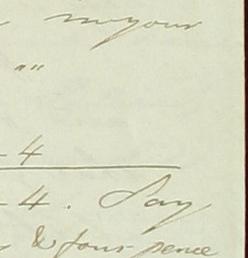 in your
""
-4
-4. Say
& four pence